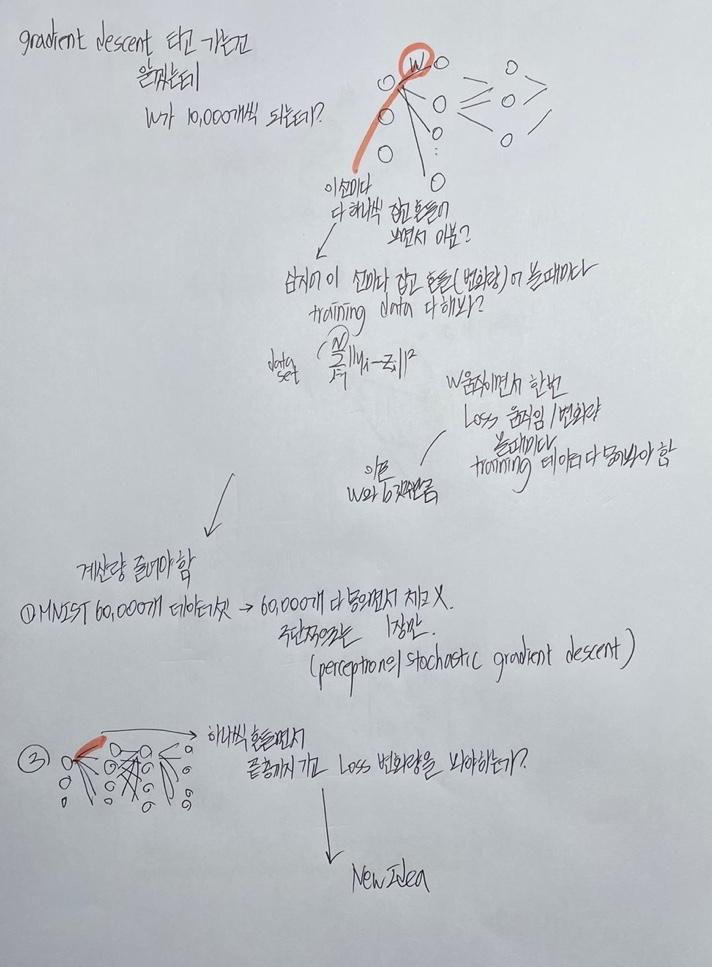 gradient descent 타고 가는건
알겠는데
W가 10,000개씩 되는데?
W
이 선마다
다 하나씩 잡고 흔들어
보면서 이동?
심지어 이 선마다 잡고 흔들(변화량)어 볼때마다
training data 다 해봐?
data set
N Σ i=1 ||yi-zi||²
W움직이면서 한번
Loss 움직임/변화량
볼때마다
training 데이터 다 봐야 함
W와 b 갯수만큼
계산량 줄여야 함
① MNIST 60,000개 데이터셋 → 60,000개 다 체크 X.
극단적으로는 1장만.
(perceptron의 stochastic gradient descent)
② 하나씩 흔들면서
끝층까지 가고 Loss 변화량을 봐야하는가?
New Idea